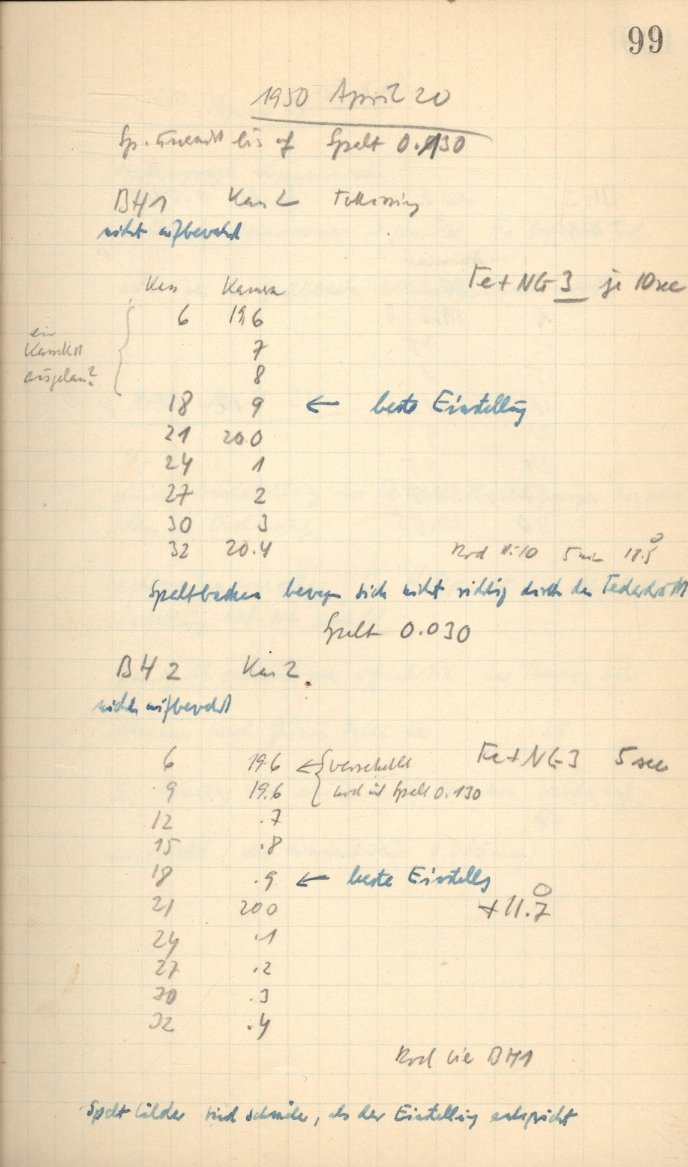 99
1950 April 20
Spalt 0.130
BH1 Kas 2 Fokussierung
nicht aufbewahrt
Fe + NG 3 je 10 sec
Kas Kamera
6 19.6
7
8
ein
Kassette
18 9 ← beste Einstellung
21 20.0
24 1
27 2
30 3
32 20.4
Rod 1:10 5 min 18.5°
Spaltbacken bewegen sich nicht richtig durch den Federdruck
Spalt 0.030
BH 2 Kas 2.
nicht aufbewahrt
6 19.6 ← verschleiert
Fe + NG 3 5 sec
9 19.6 Spalt 0.130
12 .7
15 .8
18 .9 ← beste Einstellg
21 20.0
+11.7°
24 .1
27 .2
30 .3
32 .4
Rod wie BH1
Spaltbilder sind schmäler, als der Einstellung entspricht